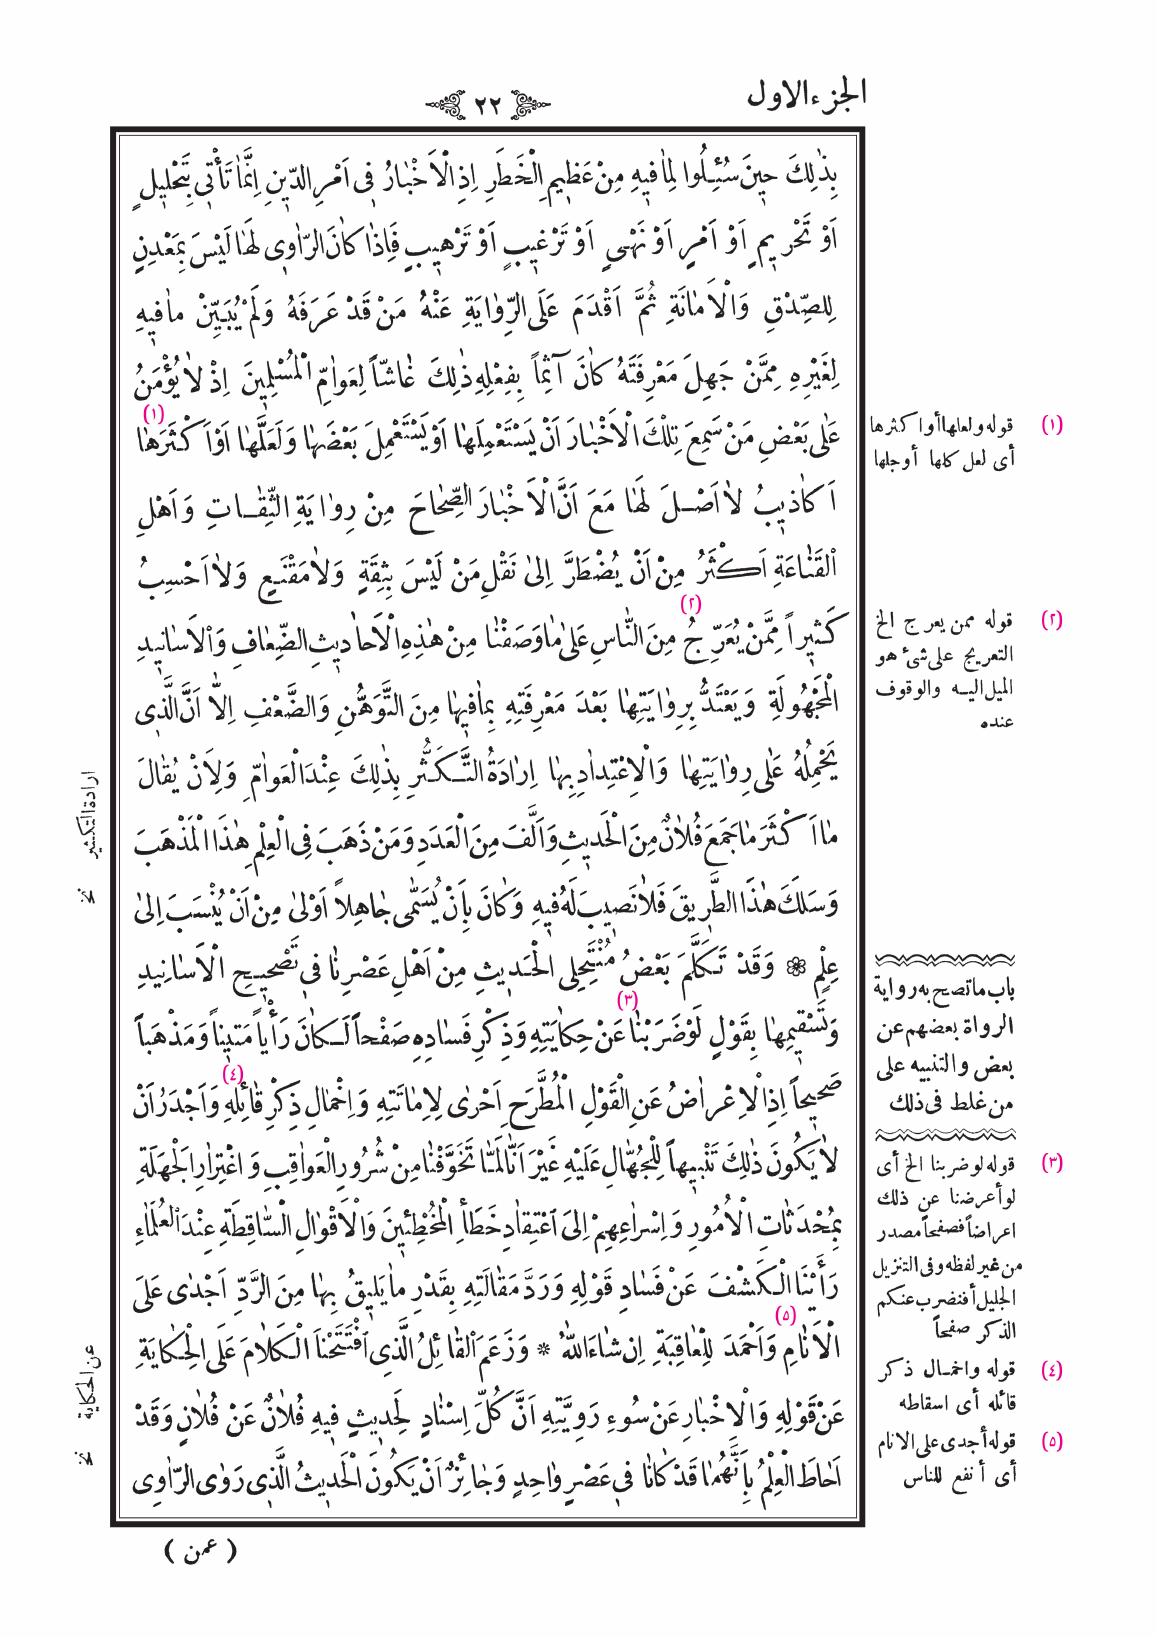 الجزء الاول
٢٢
بِذٰلِكَ حينَ سُئِلُوا لِمٰا فيهِ مِنْ عَظيمِ الْخَطَرِ اِذِ الْاَخْبٰارُ فى اَمْرِ الدّينِ اِنَّمٰا تَأْتى بِتَحْليلٍ
اَوْ تَحْريمٍ اَوْ اَمْرٍ اَوْ نَهْىٍ اَوْ تَرْغيبٍ اَوْ تَرْهيبٍ فَاِذٰا كٰانَ الرّٰاوى لَهٰا لَيْسَ بِمَعْدِنٍ
لِلصِّدْقِ وَالْاَمٰانَةِ ثُمَّ اَقْدَمَ عَلَى الرِّوٰايَةِ عَنْهُ مَنْ قَدْ عَرَفَهُ وَلَمْ يُبَيِّنْ مٰا فيهِ
لِغَيْرِهِ مِمَّنْ جَهِلَ مَعْرِفَتَهُ كٰانَ آثِماً بِفِعْلِهِ ذٰلِكَ غٰاشّاً لِعَوٰامِّ الْمُسْلِمينَ اِذْ لٰا يُؤْمَنُ
عَلٰى بَعْضِ مَنْ سَمِعَ تِلْكَ الْاَخْبٰارَ اَنْ يَسْتَعْمِلَهٰا اَوْ يَسْتَعْمِلَ بَعْضَهٰا وَلَعَلَّهٰا اَوْ اَكْثَرَهٰا (١)
اَكٰاذيبُ لٰا اَصْلَ لَهٰا مَعَ اَنَّ الْاَخْبٰارَ الصِّحٰاحَ مِنْ رِوٰايَةِ الثِّقٰاتِ وَاَهْلِ
الْقَنٰاعَةِ اَكْثَرُ مِنْ اَنْ يُضْطَرَّ اِلىٰ نَقْلِ مَنْ لَيْسَ بِثِقَةٍ وَلٰا مَقْنَعٍ وَلٰا اَحْسِبُ
كَثيراً مِمَّنْ يُعَرِّجُ (٢) مِنَ النّٰاسِ عَلٰى مٰا وَصَفْنٰا مِنْ هٰذِهِ الْاَحٰاديثِ الضِّعٰافِ وَالْاَسٰانيدِ
الْمَجْهُولَةِ وَيَعْتَدُّ بِرِوٰايَتِهٰا بَعْدَ مَعْرِفَتِهِ بِمٰا فيهٰا مِنَ التَّوَهُّنِ وَالضَّعْفِ اِلّٰا اَنَّ الَّذى
يَحْمِلُهُ عَلٰى رِوٰايَتِهٰا وَالْاِعْتِدٰادِ بِهٰا اِرٰادَةُ التَّكَثُّرِ بِذٰلِكَ عِنْدَ الْعَوٰامِّ وَلِاَنْ يُقٰالَ
مٰا اَكْثَرَ مٰا جَمَعَ فُلٰانٌ مِنَ الْحَديثِ وَاَلَّفَ مِنَ الْعَدَدِ وَمَنْ ذَهَبَ فِى الْعِلْمِ هٰذَا الْمَذْهَبَ
وَسَلَكَ هٰذَا الطَّريقَ فَلٰا نَصيبَ لَهُ فيهِ وَكٰانَ بِاَنْ يُسَمّٰى جٰاهِلاً اَوْلىٰ مِنْ اَنْ يُنْسَبَ اِلىٰ
عِلْمٍ ❁ وَقَدْ تَكَلَّمَ بَعْضُ مُنْتَحِلِى الْحَديثِ مِنْ اَهْلِ عَصْرِنٰا فى تَصْحيحِ الْاَسٰانيدِ
وَتَسْقيمِهٰا بِقَوْلٍ لَوْ ضَرَبْنٰا (٣) عَنْ حِكٰايَتِهِ وَذِكْرِ فَسٰادِهِ صَفْحاً لَكٰانَ رَأْياً مَتيناً وَمَذْهَباً
صَحيحاً اِذِ الْاِعْرٰاضُ عَنِ الْقَوْلِ الْمُطَّرَحِ اَحْرٰى لِاِمٰاتَتِهِ وَاِخْمٰالِ ذِكْرِ قٰائِلِهِ (٤) وَاَجْدَرُ اَنْ
لٰا يَكُونَ ذٰلِكَ تَنْبيهاً لِلْجُهّٰالِ عَلَيْهِ غَيْرَ اَنّٰا لَمّٰا تَخَوَّفْنٰا مِنْ شُرُورِ الْعَوٰاقِبِ وَاغْتِرٰارِ الْجَهَلَةِ
بِمُحْدَثٰاتِ الْاُمُورِ وَاِسْرٰاعِهِمْ اِلَى اعْتِقٰادِ خَطَأِ الْمُخْطِئينَ وَالْاَقْوٰالِ السّٰاقِطَةِ عِنْدَ الْعُلَمٰاءِ
رَأَيْنَا الْكَشْفَ عَنْ فَسٰادِ قَوْلِهِ وَرَدَّ مَقٰالَتِهِ بِقَدْرِ مٰا يَليقُ بِهٰا مِنَ الرَّدِّ اَجْدٰى عَلَى (٥)
الْاَنٰامِ وَاَحْمَدَ لِلْعٰاقِبَةِ اِنْ شٰاءَ اللّٰهُ * وَزَعَمَ الْقٰائِلُ الَّذِى افْتَتَحْنَا الْكَلٰامَ عَلَى الْحِكٰايَةِ
عَنْ قَوْلِهِ وَالْاِخْبٰارِ عَنْ سُوءِ رَوِيَّتِهِ اَنَّ كُلَّ اِسْنٰادٍ لِحَديثٍ فيهِ فُلٰانٌ عَنْ فُلٰانٍ وَقَدْ
اَحٰاطَ الْعِلْمُ بِاَنَّهُمٰا قَدْ كٰانٰا فى عَصْرٍ وٰاحِدٍ وَجٰائِزٌ اَنْ يَكُونَ الْحَديثُ الَّذى رَوَى الرّٰاوِى
( عمن )
(١) قوله ولعلها أو اكثرها
أى لعل كلها أو جلها
(٢) قوله ممن يعرج الخ
التعريج على شئ هو
الميل اليه والوقوف
عنده
باب ما تصح به رواية
الرواة بعضهم عن
بعض والتنبيه على
من غلط فى ذلك
(٣) قوله لو ضربنا الخ أى
لو أعرضنا عن ذلك
اعراضاً فصفحاً مصدر
من غير لفظه وفى التنزيل
الجليل أفنضرب عنكم
الذكر صفحاً
(٤) قوله واخمال ذكر
قائله أى اسقاطه
(٥) قوله أجدى على الانام
أى أنفع للناس
ارادة التكثير نخ
عن الحكاية نخ